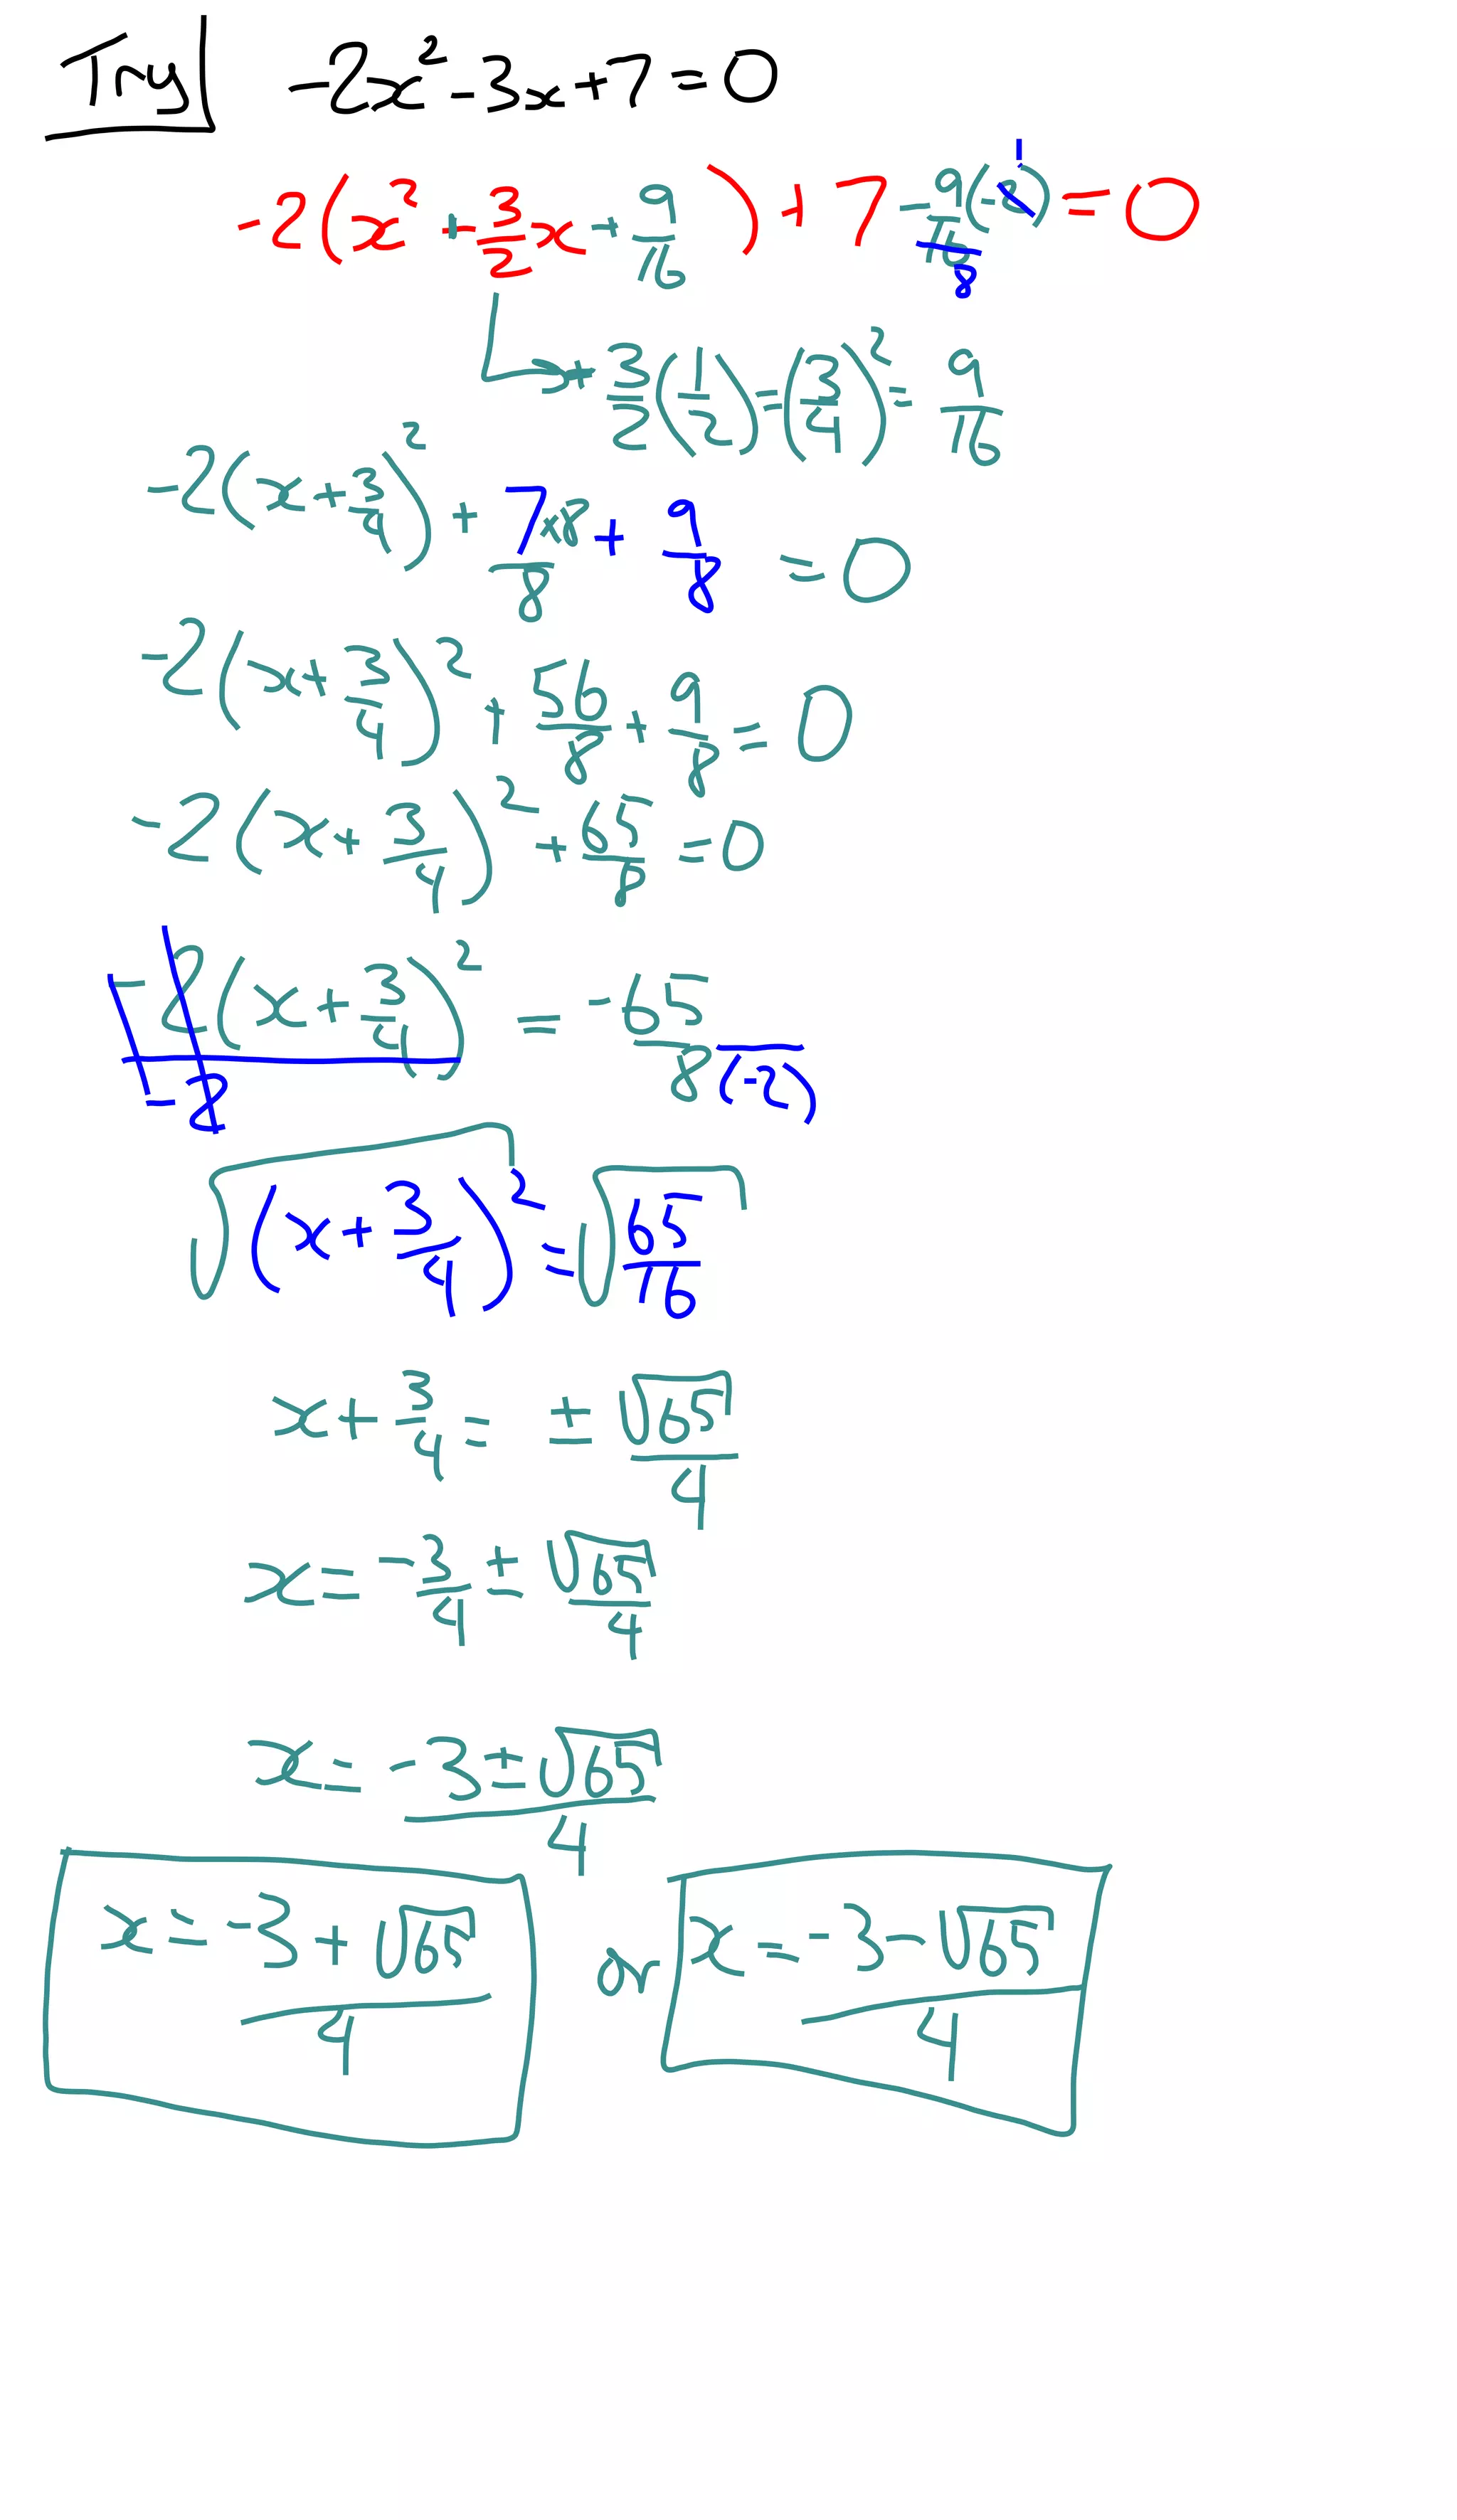 Try -2x² - 3x + 7 = 0
-2(x² + 3/2 x + 9/16) + 7 - 9/16(-2) = 0
1
8
+ 3/2 (1/2) = (3/4)² = 9/16
-2(x + 3/4)² + 7×8/8 + 9/8 = 0
-2(x + 3/4)² + 56/8 + 9/8 = 0
-2(x + 3/4)² + 65/8 = 0
-2(x + 3/4)² = -65
-2 8(-2)
√(x + 3/4)² = √65/16
x + 3/4 = ± √65/4
x = -3/4 ± √65/4
x = -3 ± √65/4
x = -3 + √65/4 or x = -3 - √65/4